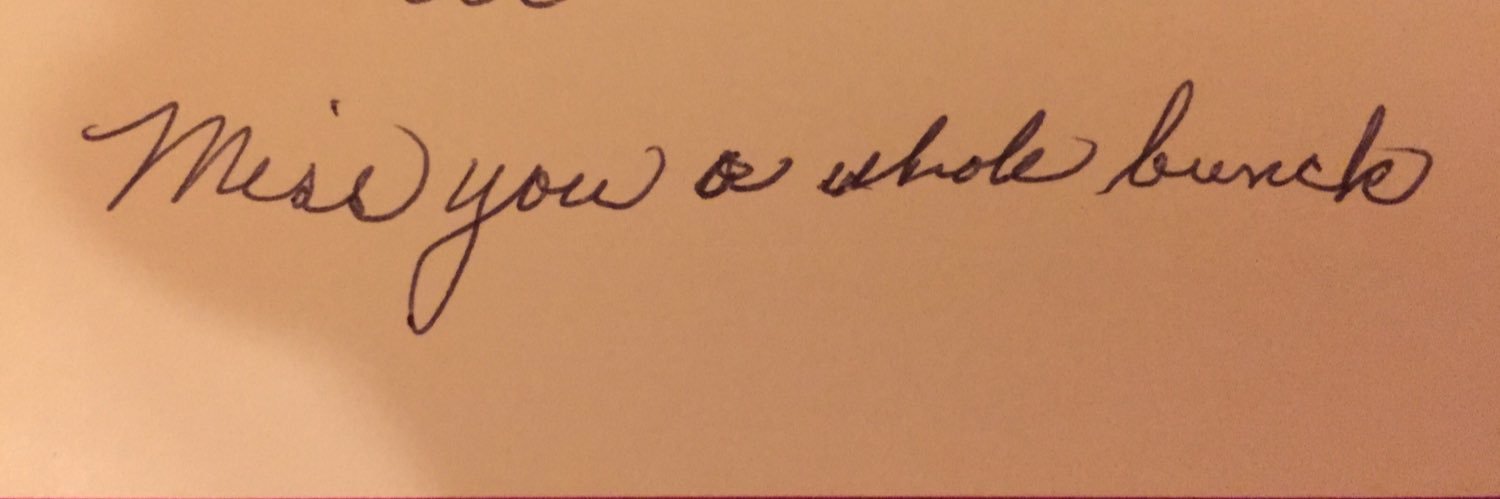 Miss you a whole bunch